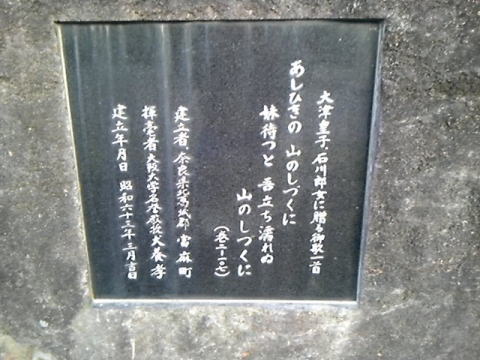 大津皇子、石川郎女に贈る御歌一首
あしひきの 山のしづくに
妹待つと 吾立ち濡れぬ
山のしづくに
(巻二-一〇七)
建立者、奈良県北葛城郡當麻町
揮毫者 大阪大学名誉教授 犬養孝
建立年月日 昭和六十三年三月吉日